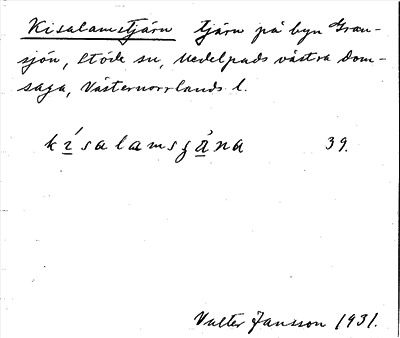 Kisalamstjärn tjärn på byn Gran-
sjön, Stöde sn, Medelpads västra dom-
saga, Västernorrlands l.
kísalamsʒä́na 39.
Valter Jansson 1931.